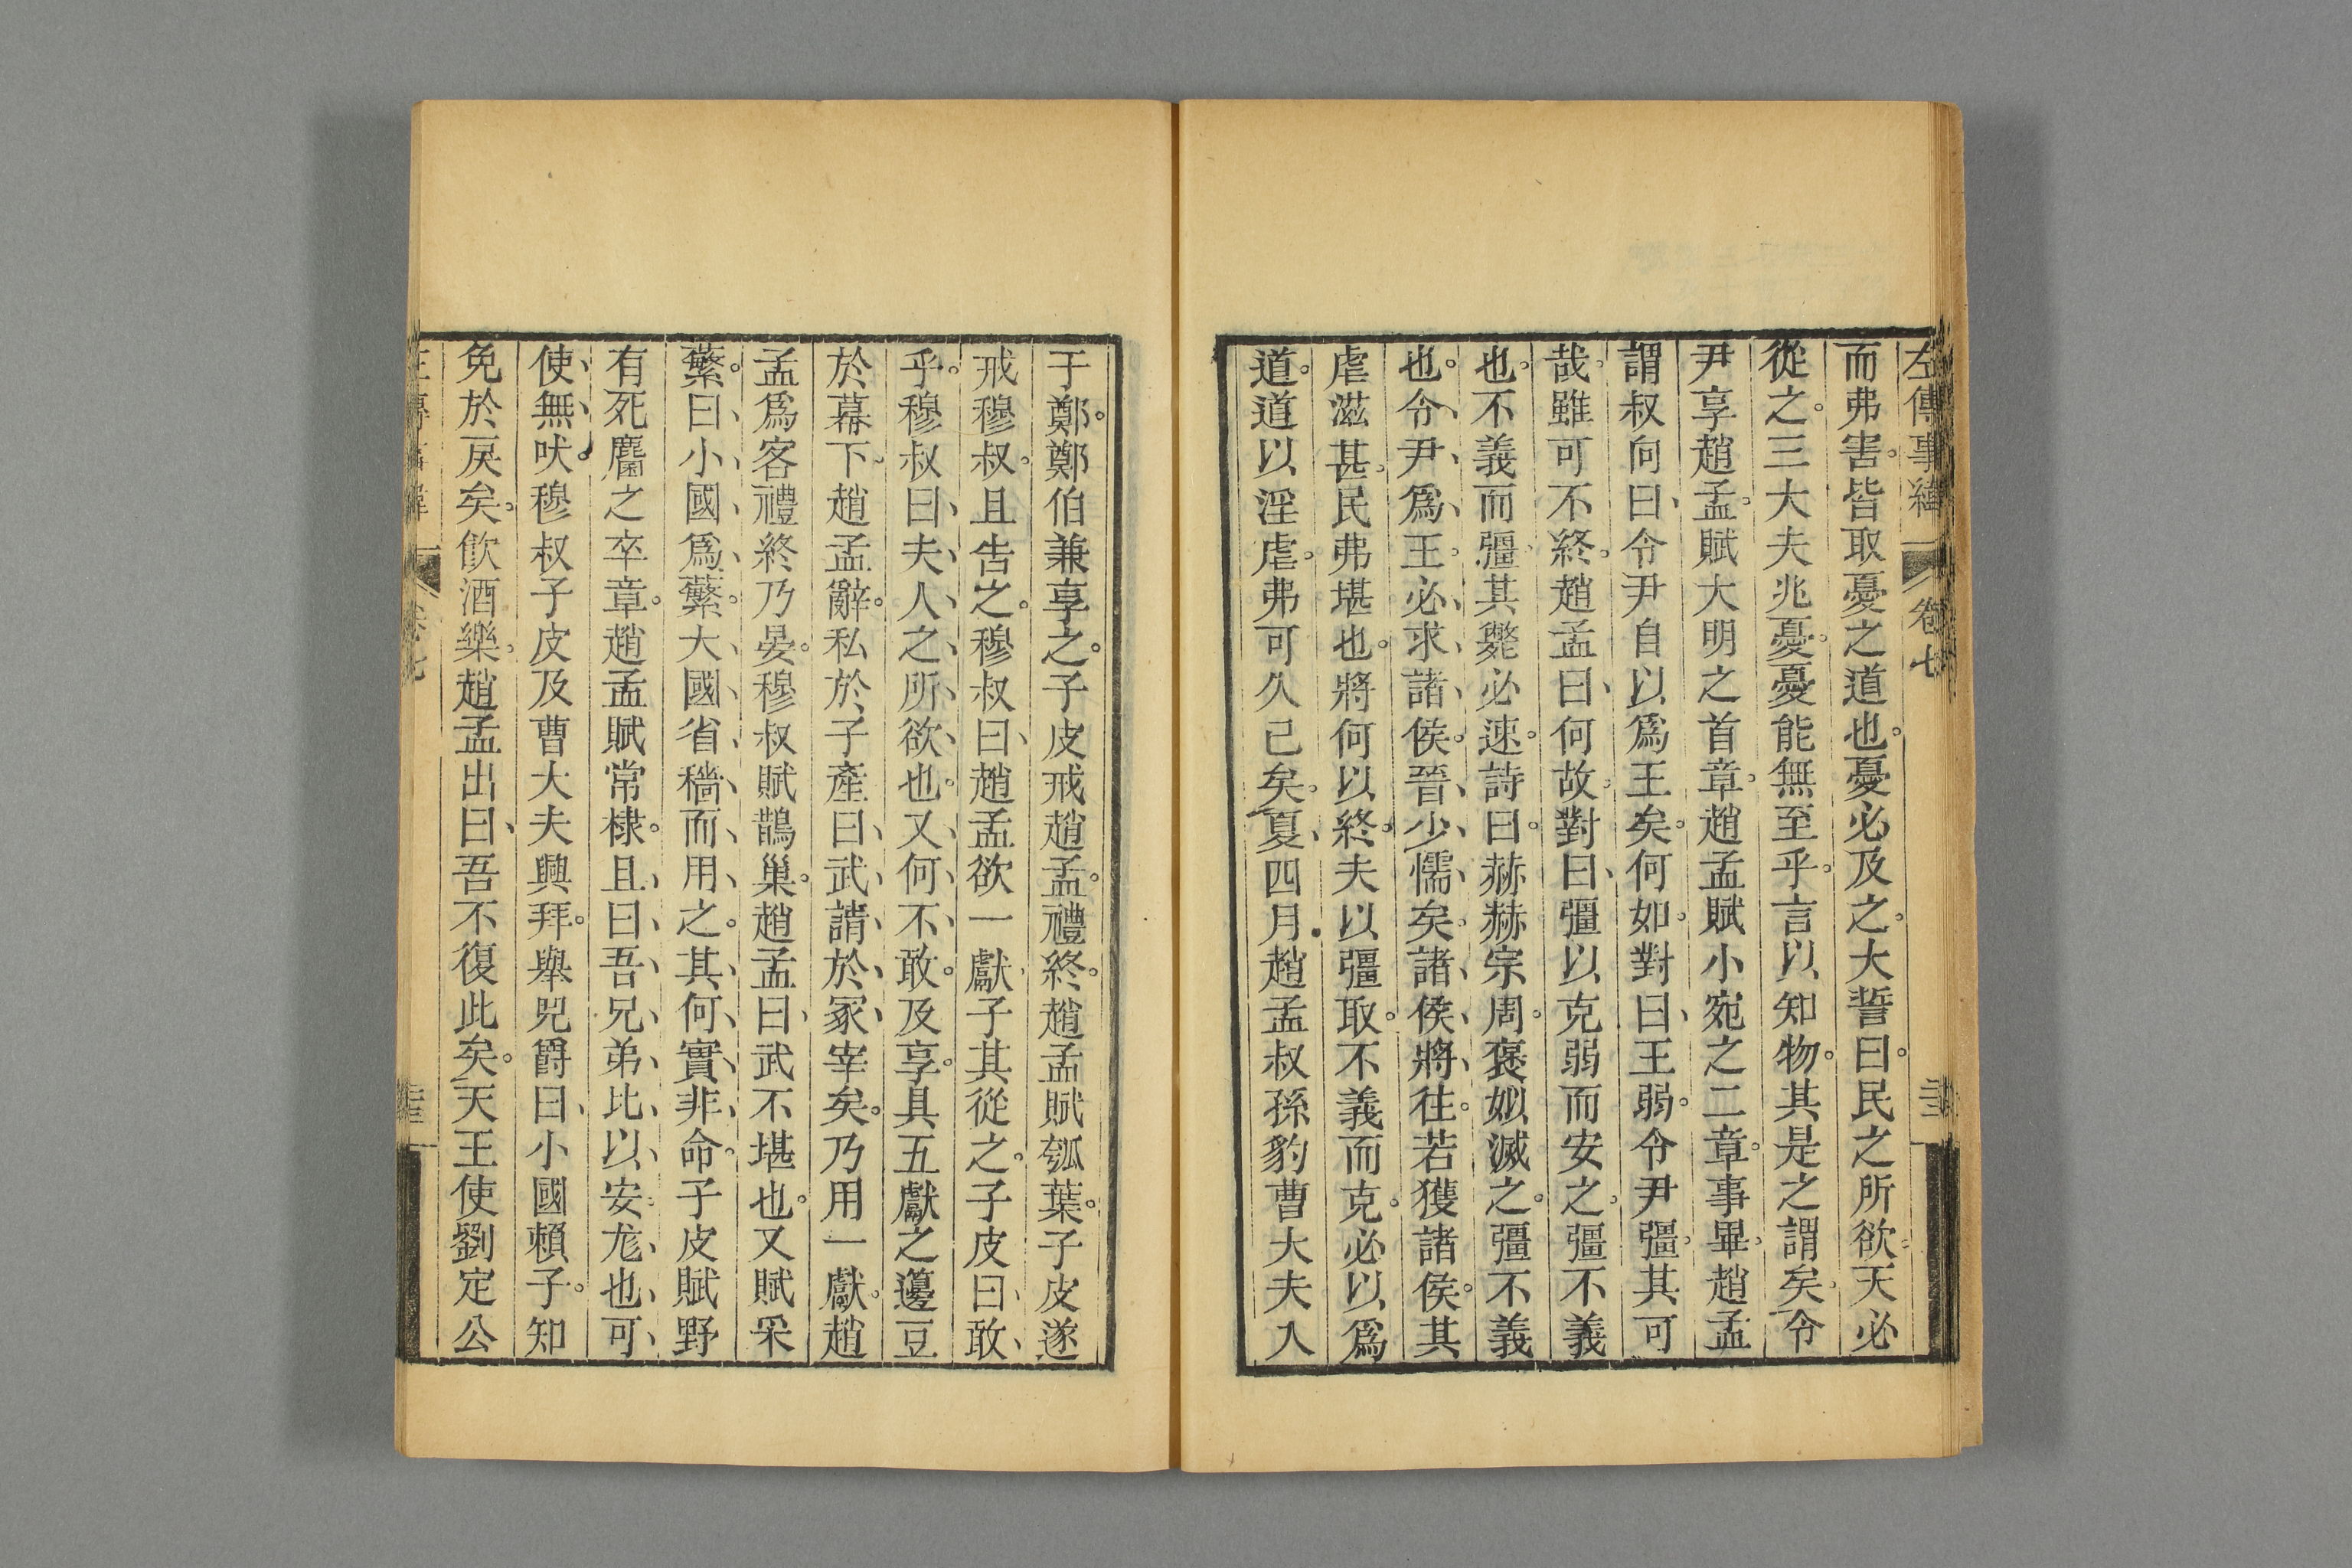 左傳事緯
卷七
而弗害皆取憂之道也憂必及之大誓曰民之所欲天必
從之三大夫兆憂憂能無至乎言以知物其是之謂矣令
尹享趙孟賦大明之首章趙孟賦小宛之二章事畢趙孟
謂叔向曰令尹自以爲王矣何如對曰王弱令尹彊其可
哉雖可不終趙孟曰何故對曰彊以克弱而安之彊不義
也不義而彊其斃必速詩曰赫赫宗周褒姒滅之彊不義
也令尹爲王必求諸侯晉少懦矣諸侯將往若獲諸侯其
虐滋甚民弗堪也將何以終夫以彊取不義而克必以爲
道道以淫虐弗可久已矣夏四月趙孟叔孫豹曹大夫入
于鄭鄭伯兼享之子皮戒趙孟禮終趙孟賦瓠葉子皮遂
戒穆叔且告之穆叔曰趙孟欲一獻子其從之子皮曰敢
乎穆叔曰夫人之所欲也又何不敢及享具五獻之籩豆
於幕下趙孟辭私於子產曰武請於冢宰矣乃用一獻趙
孟爲客禮終乃晏穆叔賦鵲巢趙孟曰武不堪也又賦采
蘩曰小國爲蘩大國省穡而用之其何實非命子皮賦野
有死麕之卒章趙孟賦常棣且曰吾兄弟比以安尨也可
使無吠穆叔子皮及曹大夫興拜舉兕爵曰小國賴子知
免於戾矣飮酒樂趙孟出曰吾不復此矣天王使劉定公